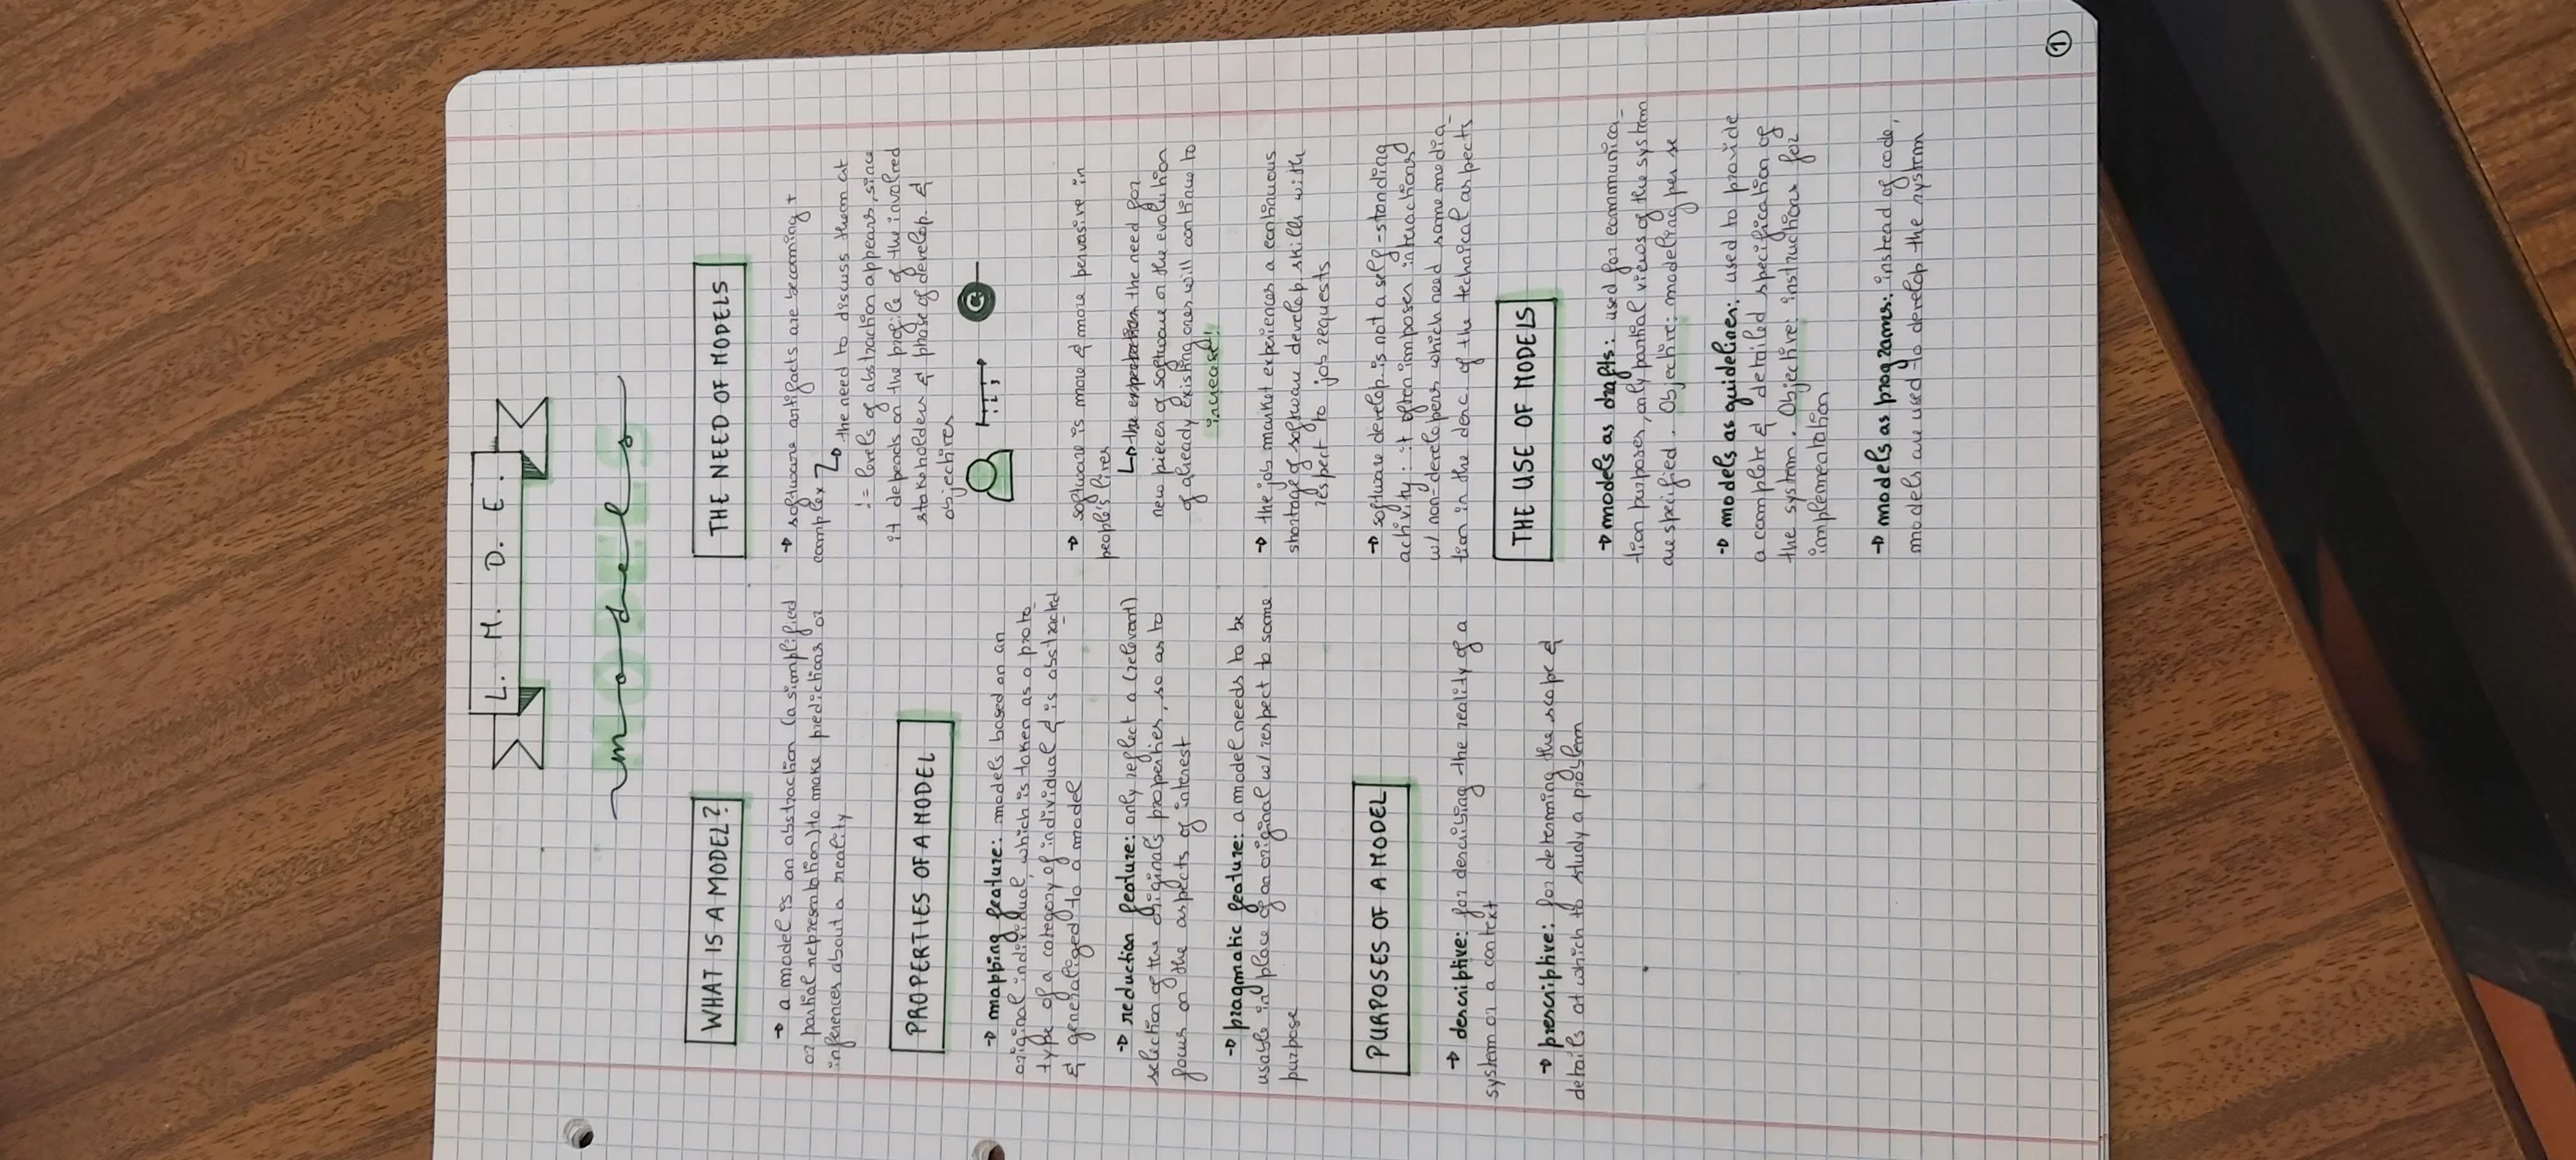 L. M. D. E.
MODELS
models
WHAT IS A MODEL?
→ a model is an abstraction (a simplified
or partial representation) to make predictions or
inferences about a reality
PROPERTIES OF A MODEL
→ mapping feature: models based on an
original individual, which is taken as a proto_
type of a category of individual & is abstracted
& generalized to a model
→ reduction feature: only reflect a (relevant)
selection of the original's properties, so as to
focus on the aspects of interest
→ pragmatic feature: a model needs to be
usable in place of an original w/ respect to some
purpose
PURPOSES OF A MODEL
→ descriptive: for describing the reality of a
system or a context
→ prescriptive: for determining the scope &
details at which to study a problem
THE NEED OF MODELS
→ software artifacts are becoming +
complex
↳ the need to discuss them at
!= levels of abstraction appears, since
it depends on the profile of the involved
stakeholders & phase of develop. &
objectives
→ software is more & more pervasive in
people's lives
↳ the expectation the need for
new pieces of software or the evolution
of already existing ones will continue to
increase!
→ the job market experiences a continuous
shortage of software develop. skills with
respect to job requests
→ software develop. is not a self-standing
activity: it often imposes interactions
w/ non-developers which need some media_
tion in the desc. of the technical aspects
THE USE OF MODELS
→ models as drafts: used for communica_
tion purposes, only partial views of the system
are specified. Objective: modeling per se
→ models as guidelines: used to provide
a complete & detailed specification of
the system. Objective: instructions for
implementation
→ models as programs: instead of code,
models are used to develop the system
1